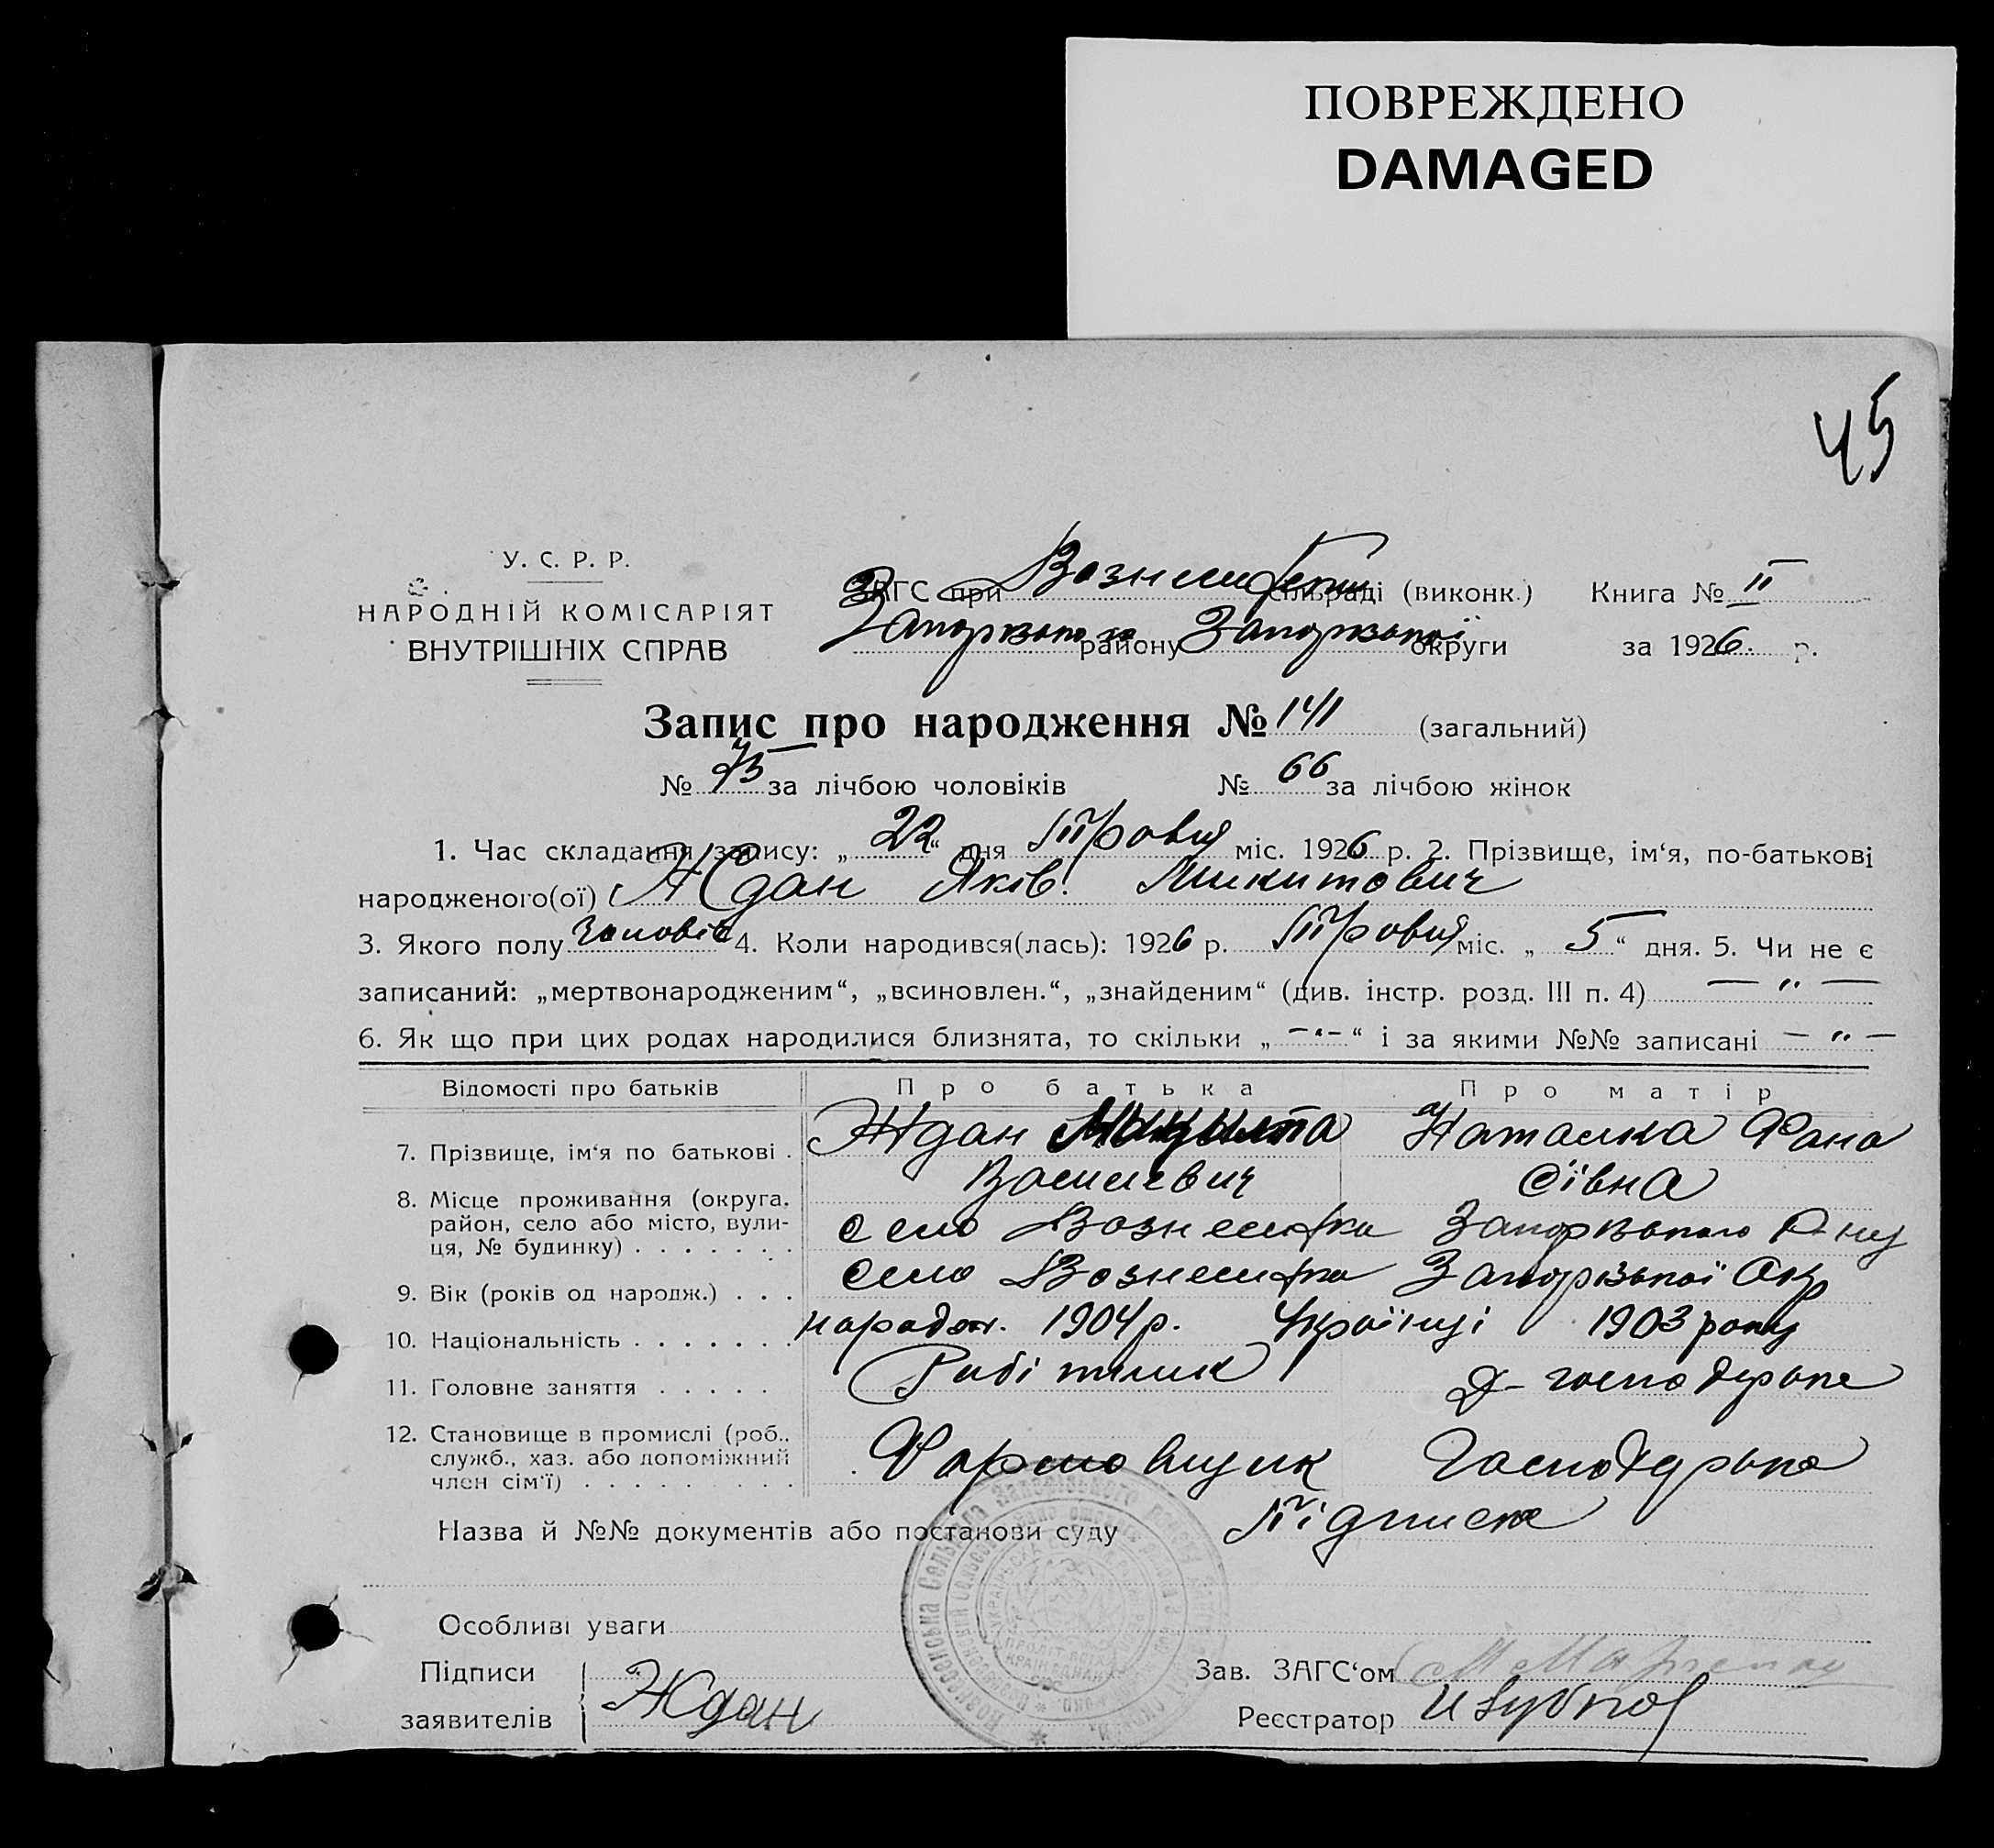 ПОВРЕЖДЕНО
DAMAGED
45
У. С. Р. Р.
НАРОДНІЙ КОМІСАРІЯТ
ВНУТРІШНІХ СПРАВ
ЗАГС при Вознесенській сільраді (виконк.) Книга № II
Запорізького району Запорізької округи за 1926 р.
Запис про народження № 141 (загальний)
№ 75 за лічбою чоловіків № 66 за лічбою жінок
1. Час складання запису: „ 22 “ дня Травня міс. 1926 р. 2. Прізвище, ім'я, по-батькові
народженого(ої) Ждан Яків Микитович
3. Якого полу чоловіч 4. Коли народився(лась): 1926 р. Травня міс. „ 5 “ дня. 5. Чи не є
записаний: „мертвонародженим“, „всиновлен.“, „знайденим“ (див. інстр. розд. III п. 4) — „ —
6. Як що при цих родах народилися близнята, то скільки „ –„– “ і за якими №№ записані — „ —
Відомості про батьків Про батька Про матір
7. Прізвище, ім'я по батькові . Ждан Микита Наталка Фана
Василевич сіївна
8. Місце проживання (округа, район, село або місто, вули-
ця, № будинку) . . . . . . . село Вознесенка Запорізького Р-ну
село Вознесенка Запорізької Окр
9. Вік (років од народж.) . . .
10. Національність . . . . . . . народж. 1904 р. Українці 1903 року
11. Головне заняття . . . . . Робітник Д-господарька
12. Становище в промислі (роб.,
служб., хаз. або допоміжний
член сім'ї) . . . . . . . . . Формовщик Господарька
Назва й №№ документів або постанови суду Підписка
Особливі уваги
Підписи
заявителів Ждан
Зав. ЗАГС'ом
Реєстратор